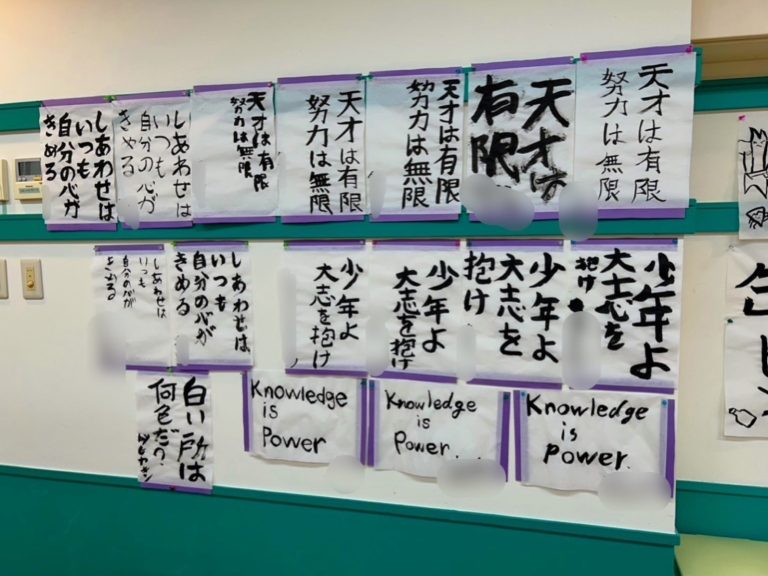 天才は有限
努力は無限
天才は
有限
天才は有限
努力は無限
天才は有限
努力は無限
天才は有限
努力は無限
しあわせは
いつも
自分の心が
きめる
しあわせは
いつも
自分の心が
きめる
少年よ
大志を
抱け
少年よ
大志を
抱け
少年よ
大志を抱け
少年よ
大志を抱け
しあわせは
いつも
自分の心が
きめる
しあわせは
いつも
自分の心が
きめる
白い所は
何色だ?
Knowledge
is
Power
Knowledge
is
Power.
Knowledge
is
Power.